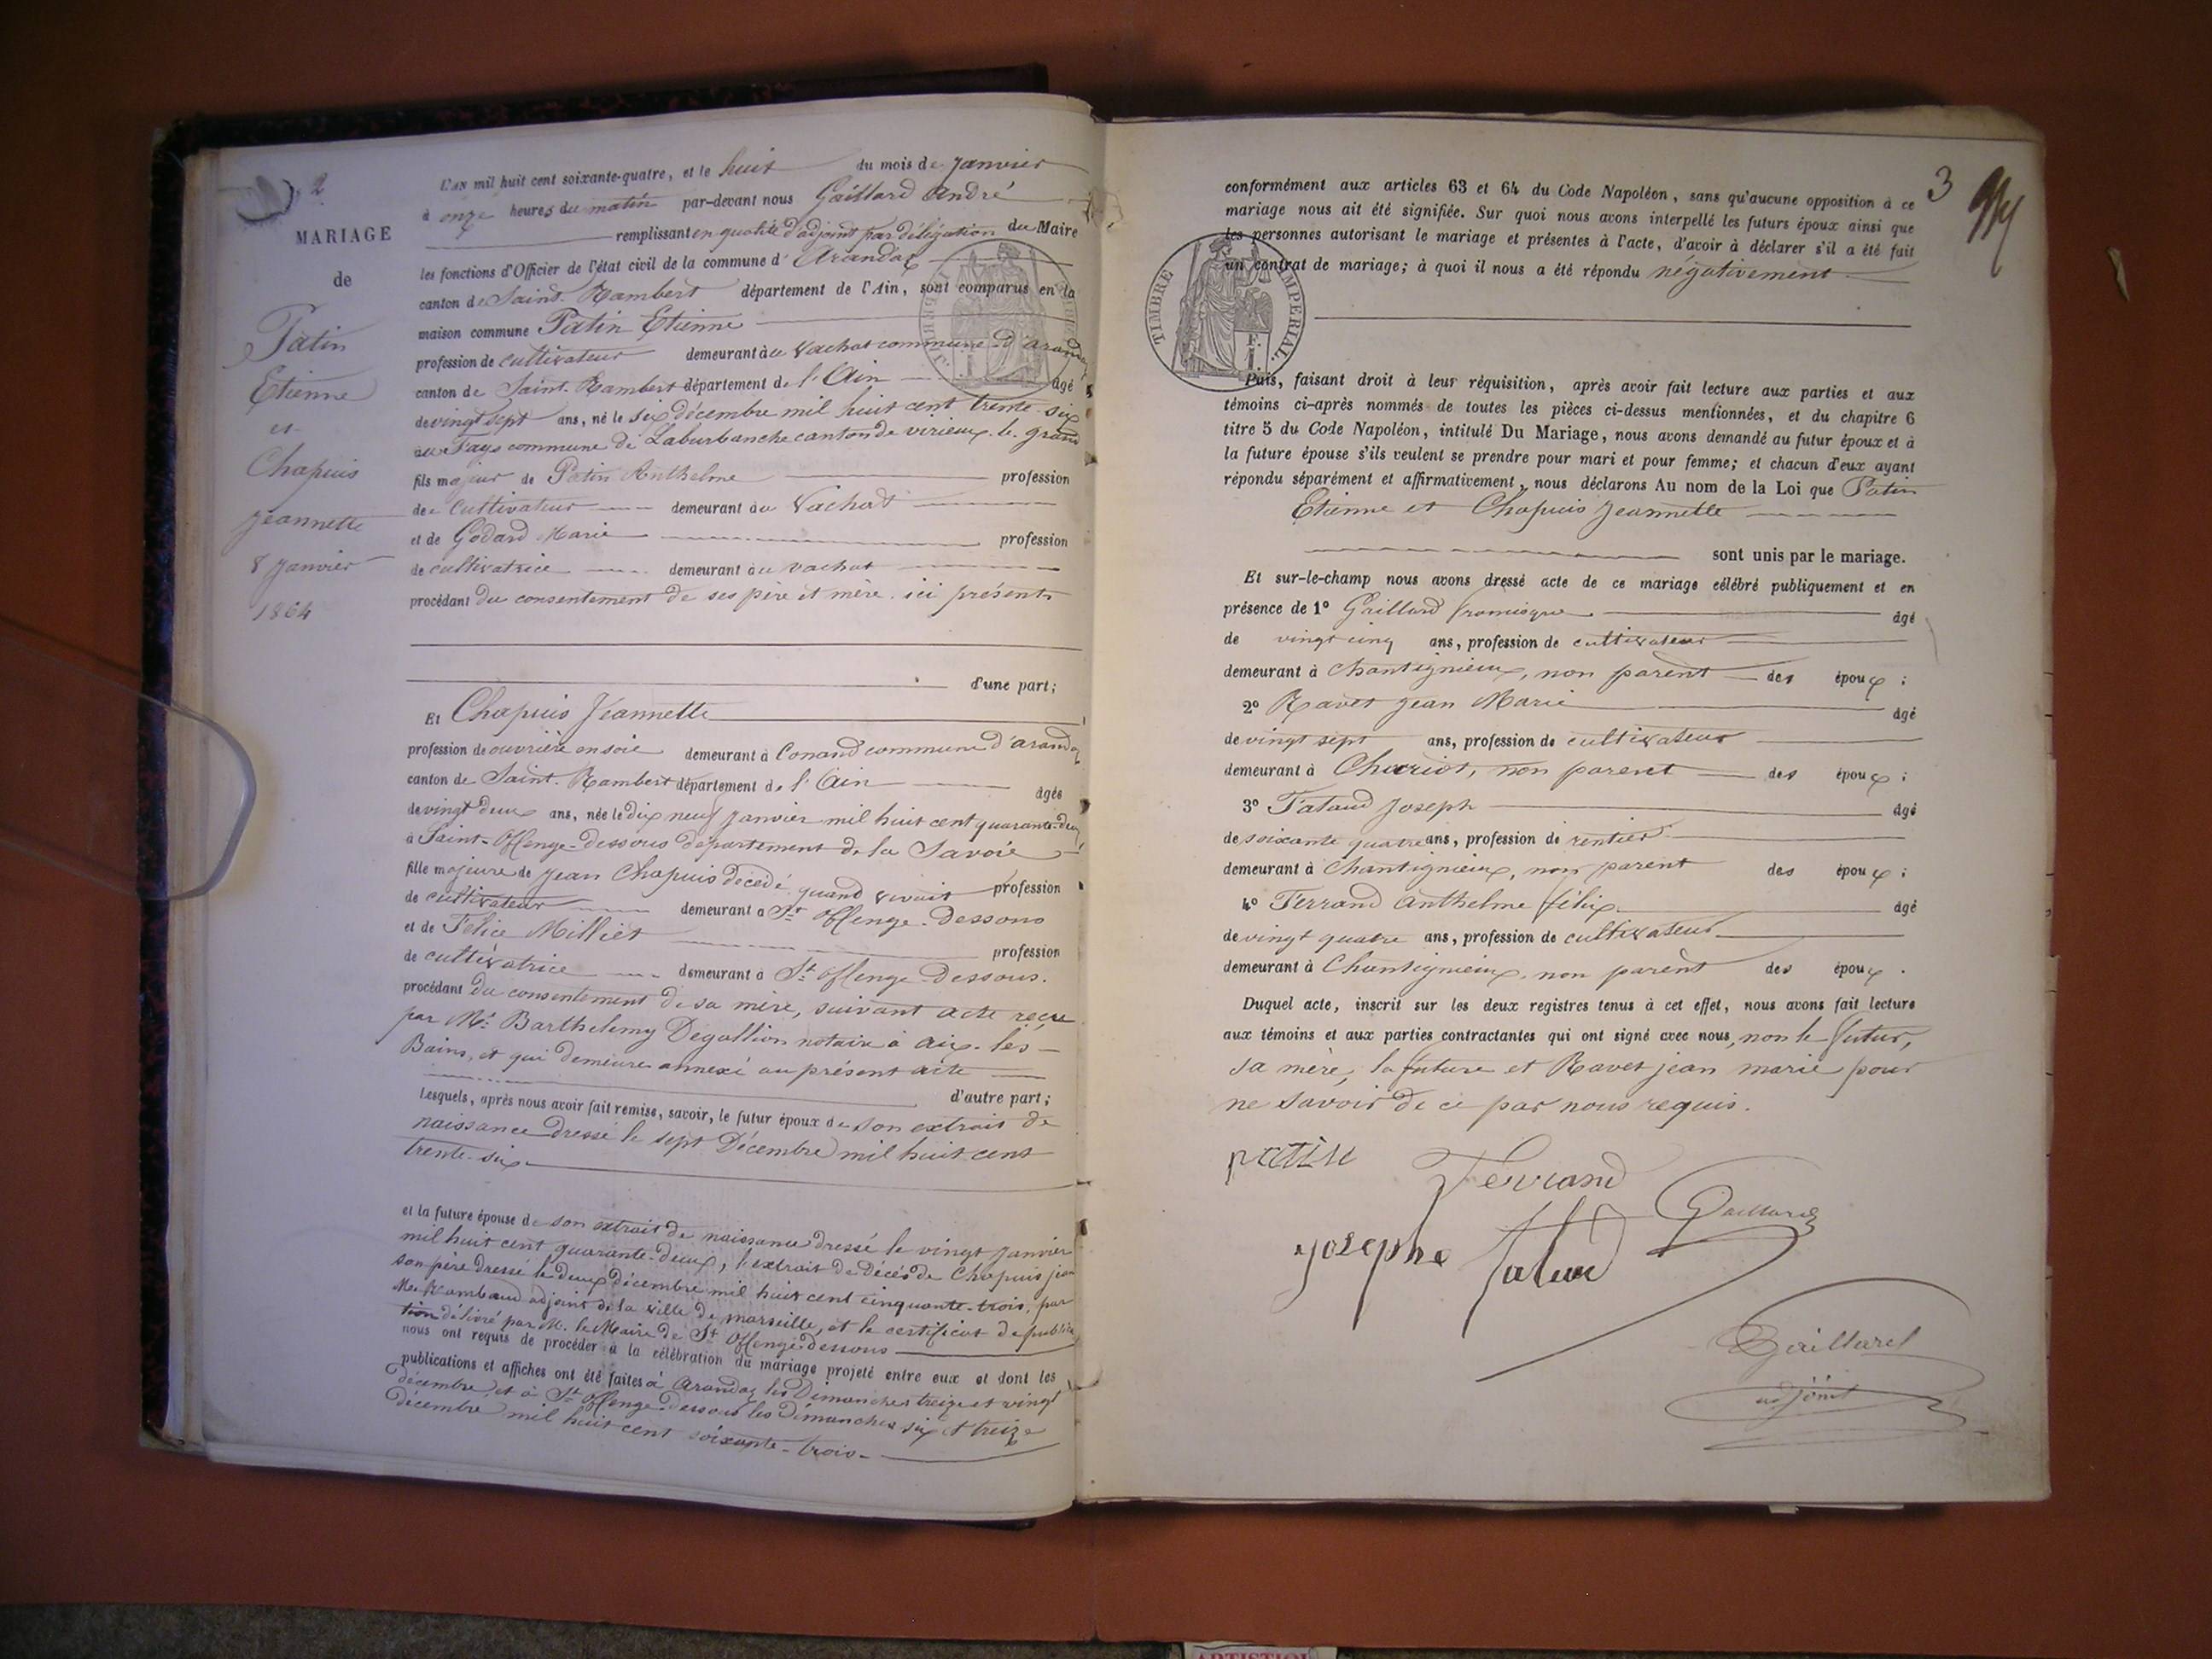 2
MARIAGE
de
Patin
Etienne
et
Chapuis
Jeannette
8 Janvier
1864
L'an mil huit cent soixante-quatre, et le huit du mois de Janvier
à onze heures du matin par-devant nous Gaillard André
remplissant en qualité d'adjoint par délégation du Maire
les fonctions d'Officier de l'état civil de la commune d'Arandas
canton de Saint-Rambert département de l'Ain, sont comparus en la
maison commune Patin Etienne
profession de cultivateur demeurant au Vachat commune d'Arandas
canton de Saint-Rambert département de l'Ain âgé
de vingt sept ans, né le six décembre mil huit cent trente-six
au Fays commune de Laburbanche canton de virieux-le-grand
fils majeur de Patin Anthelme profession
de cultivateur demeurant au Vachat
et de Godard Marie profession
de cultivatrice demeurant au vachat
procédant du consentement de ses père et mère ici présents
d'une part;
Et Chapuis Jeannette
profession de ouvrière en soie demeurant à Conand commune d'arandas
canton de Saint-Rambert département de l'Ain âgée
de vingt deux ans, née le dix neuf Janvier mil huit cent quarante-deux
à Saint-Offenge-Dessous département de la Savoie
fille majeure de Jean Chapuis décédé, quand vivait profession
de cultivateur demeurant à St Offenge-Dessous
et de Félice Milliet profession
de cultivatrice demeurant à St Offenge-Dessous.
procédant du consentement de sa mère, suivant acte reçu
par Me Barthelemy Degallion notaire à Aix-les-
Bains, et qui demeure annexé au présent acte
d'autre part;
Lesquels, après nous avoir fait remise, savoir, le futur époux de son extrait de
naissance dressé le sept Décembre mil huit cent
trente-six
et la future épouse de son extrait de naissance dressé le vingt Janvier
mil huit cent quarante-deux, l'extrait de Décès de Chapuis jean
son père dressé le deux décembre mil huit cent cinquante-trois, par
Mr Rambaud adjoint de la ville de marseille, et le certificat de publica
tion délivré par M. le Maire de St Offenge dessous
nous ont requis de procéder à la célébration du mariage projeté entre eux et dont les
publications et affiches ont été faites à Arandas les Dimanches treize et vingt
décembre, et à St Offenge-Dessous les Dimanches six et treize
décembre mil huit cent soixante-trois
3
conformément aux articles 63 et 64 du Code Napoléon, sans qu'aucune opposition à ce
mariage nous ait été signifiée. Sur quoi nous avons interpellé les futurs époux ainsi que
les personnes autorisant le mariage et présentes à l'acte, d'avoir à déclarer s'il a été fait
un contrat de mariage; à quoi il nous a été répondu négativement
TIMBRE IMPERIAL.
1 F.
Puis, faisant droit à leur réquisition, après avoir fait lecture aux parties et aux
témoins ci-après nommés de toutes les pièces ci-dessus mentionnées, et du chapitre 6
titre 5 du Code Napoléon, intitulé Du Mariage, nous avons demandé au futur époux et à
la future épouse s'ils veulent se prendre pour mari et pour femme; et chacun d'eux ayant
répondu séparément et affirmativement, nous déclarons Au nom de la Loi que Patin
Etienne et Chapuis Jeannette
sont unis par le mariage.
Et sur-le-champ nous avons dressé acte de ce mariage célébré publiquement et en
présence de 1° Gaillard Framisque âgé
de vingt cinq ans, profession de cultivateur
demeurant à Chantignieux, non parent des époux;
2° Ravet Jean Marie âgé
de vingt sept ans, profession de cultivateur
demeurant à Charriot, non parent des époux;
3° Fataud Joseph âgé
de soixante quatre ans, profession de rentier
demeurant à Chantignieux, non parent des époux;
4° Ferrand Anthelme félix âgé
de vingt quatre ans, profession de cultivateur
demeurant à Chantignieux, non parent des époux.
Duquel acte, inscrit sur les deux registres tenus à cet effet, nous avons fait lecture
aux témoins et aux parties contractantes qui ont signé avec nous, non le futur,
sa mère, la future et Ravet jean marie pour
ne savoir de ce par nous requis.
patin
Ferrand
Gaillard
Josephe
Gaillard
adjoint